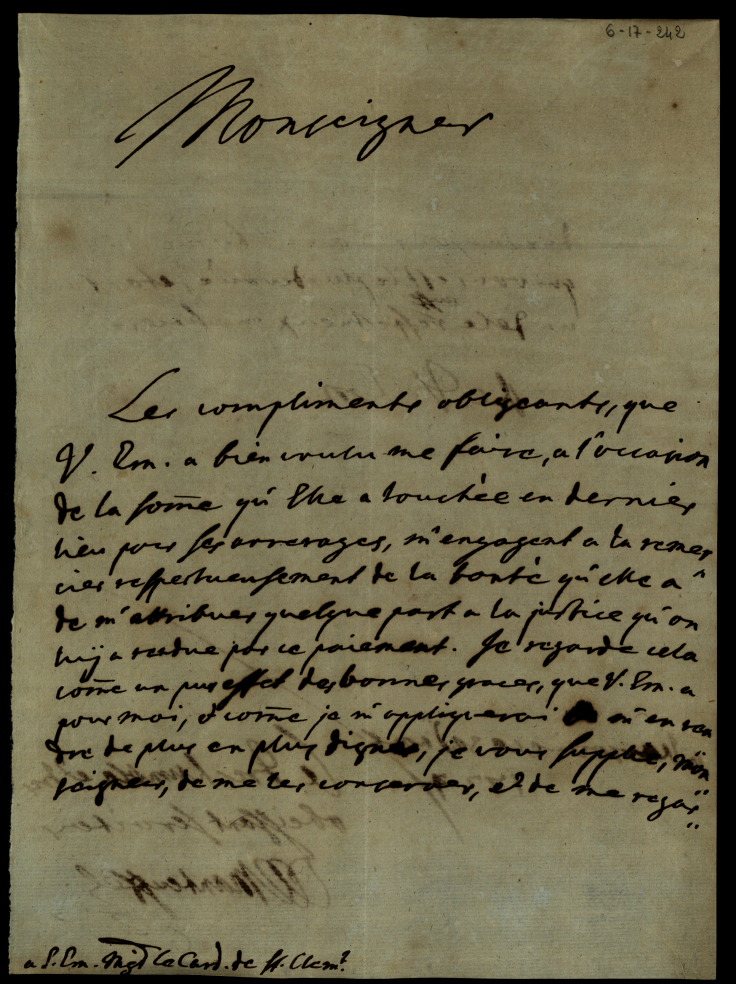 6-17-242
Monseigner
Les compliments obligeants, que
V. Em. a bien voulu me faire, a l'occasion
de la some qu'Elle a touchée en dernier
lieu pour ses arrerages, m'engagent a la remer
cier respectueusement de la bonté qu'elle a
de m'attribuer quelque part a la justice qu'on
luy a rendue par ce paiement. Je regarde cela
come un pur effet des bonnes graces, que V. Em. a
pour moi, & come je m'appliquerai a m'en ren
dre de plus en plus digne, je vous supplie, mon
seigner, de me les conserver, et de me regar
a S. Em. Msgr le Card. de St. Clemt.